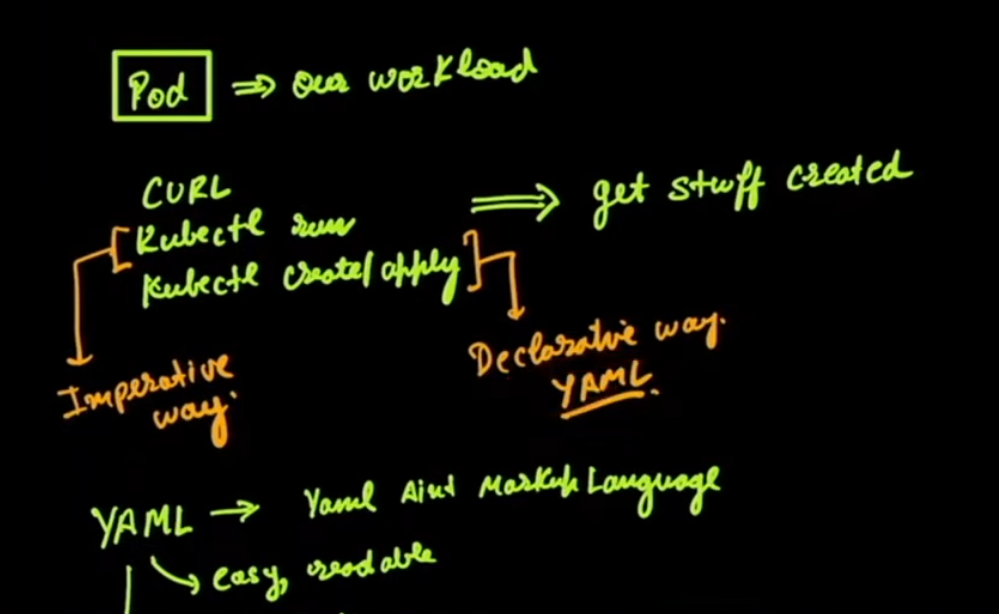 Pod ⇒ our workload
CURL
Kubectl run
Kubectl create/apply ⇒ get stuff created
Imperative way.
Declarative way.
YAML.
YAML → Yaml Aint Markup Language
→ easy, readable